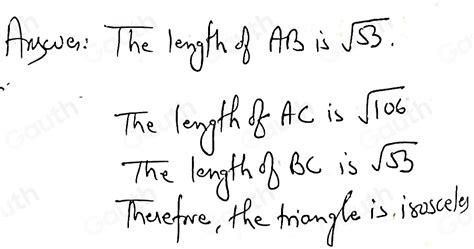 Answer: The length of AB is √53.
The length of AC is √106
The length of BC is √53
Therefore, the triangle is isosceles